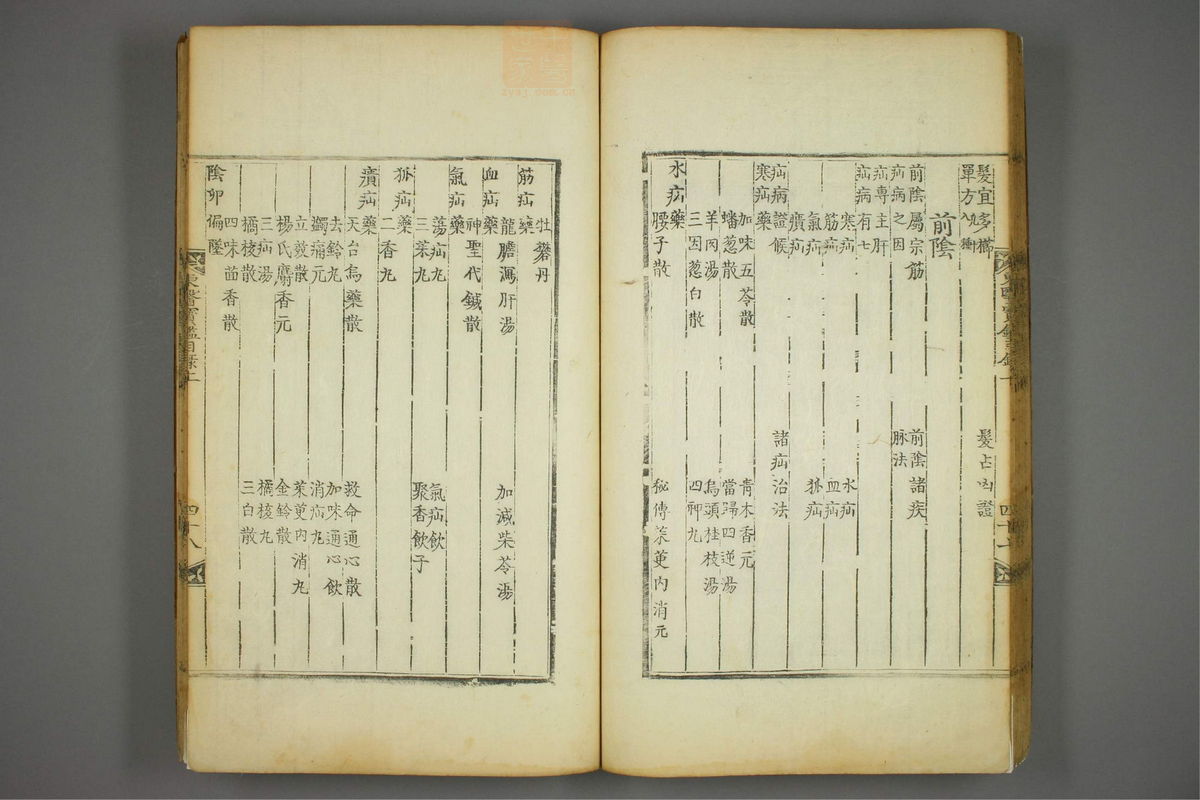 髮宜多櫛 髮占凶證
單方八種
前陰
前陰屬宗筋 前陰諸疾
疝病之因 脉法
疝專主肝
疝病有七
寒疝 水疝
筋疝 血疝
氣疝 狐疝
㿗疝
疝病證候 諸疝治法
寒疝藥
加味五苓散 青木香元
蟠葱散 當歸四逆湯
羊肉湯 烏頭桂枝湯
三因葱白散 四神丸
水疝藥
腰子散 秘傳茱萸內消元
東醫寶鑑目錄上
四十七
牡礬丹
筋疝藥
龍膽瀉肝湯 加減柴苓湯
血疝藥
神聖代鍼散
氣疝藥
蕩疝丸 氣疝飮
三茱丸 聚香飮子
狐疝藥
二香丸
㿗疝藥
天台烏藥散 救命通心散
去鈴丸 加味通心飮
蠲痛元 消疝丸
立效散 茱萸內消丸
楊氏麝香元 金鈴散
三疝湯 橘核丸
橘核散 三白散
四味茴香散
陰卵偏墜
東醫寶鑑目錄上
四十八